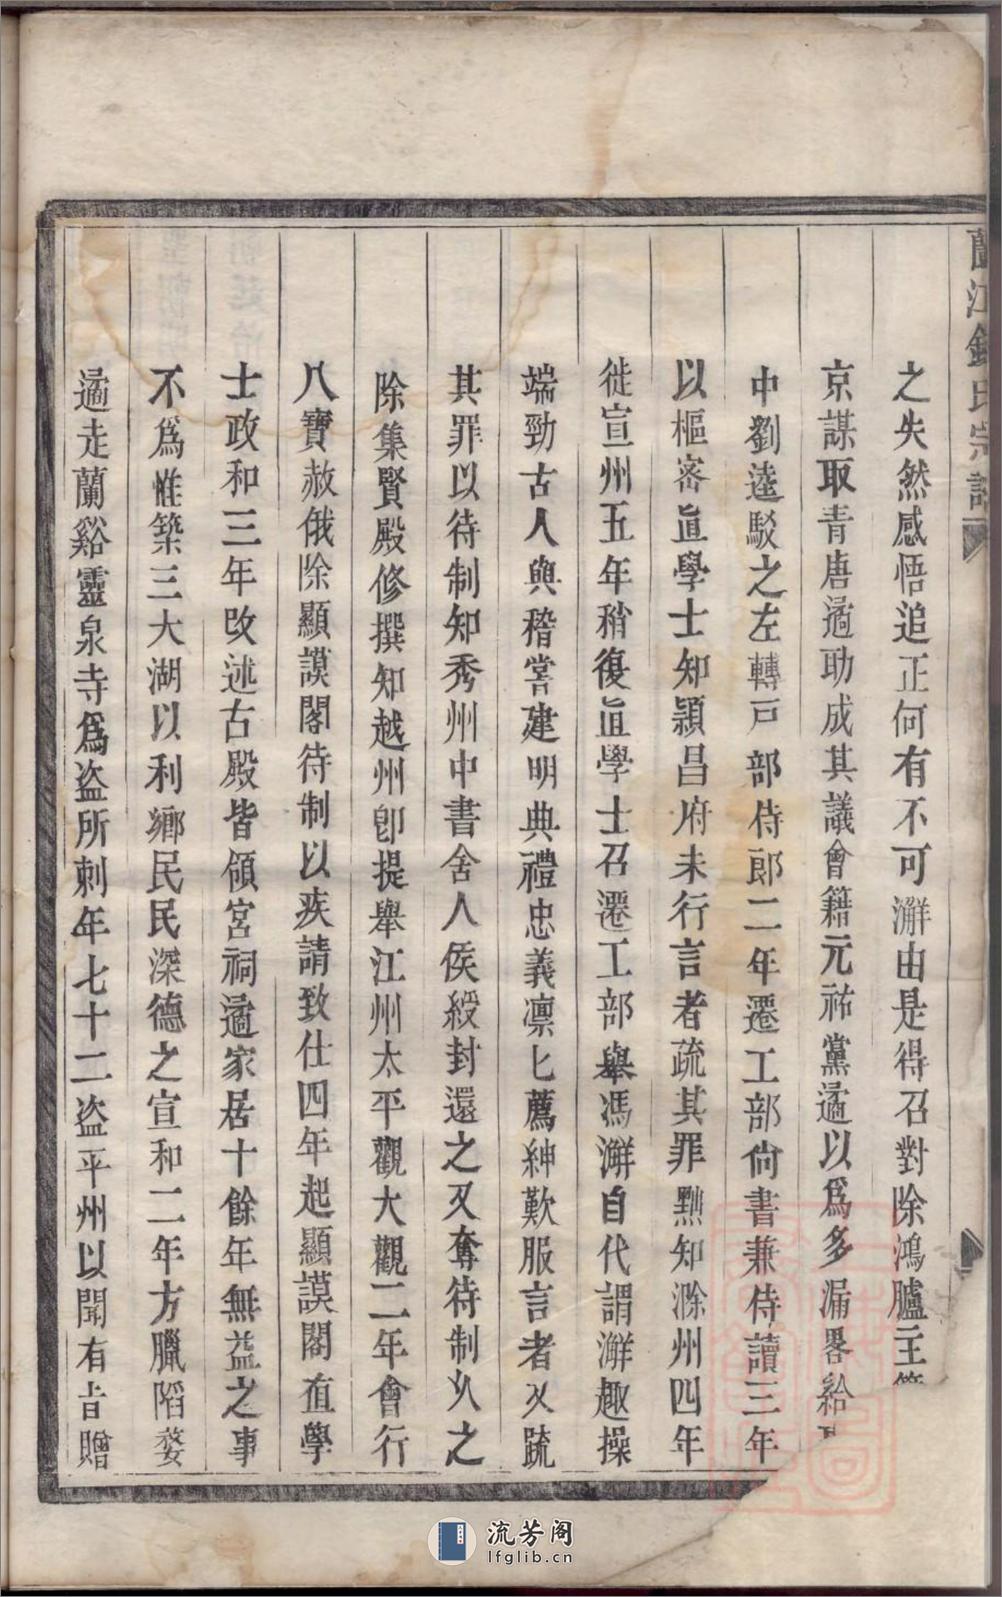 蘭江錢氏宗譜
之失然感悟追正何有不可澥由是得召對除鴻臚主簿
京謀取青唐遹助成其議會籍元祐黨遹以爲多漏畧給
中劉逵駁之左轉戸部侍郎二年遷工部尙書兼侍讀三年
以樞密直學士知潁昌府未行言者疏其罪黜知滁州四年
徙宣州五年稍復直學士召遷工部舉馮澥自代謂澥趣操
端勁古人與稽嘗建明典禮忠義凛匕薦紳歎服言者又䟽
其罪以待制知秀州中書舍人侯綬封還之又奪待制乆之
除集賢殿修撰知越州卽提舉江州太平觀大觀二年會行
八寶赦俄除顯謨閣待制以疾請致仕四年起顯謨閣直學
士政和三年改述古殿皆領宮祠遹家居十餘年無益之事
不爲惟築三大湖以利鄉民民深德之宣和二年方臘陷婺
遹走蘭谿靈泉寺爲盜所刺年七十二盜平州以聞有旨贈
流芳阁
lfglib.cn